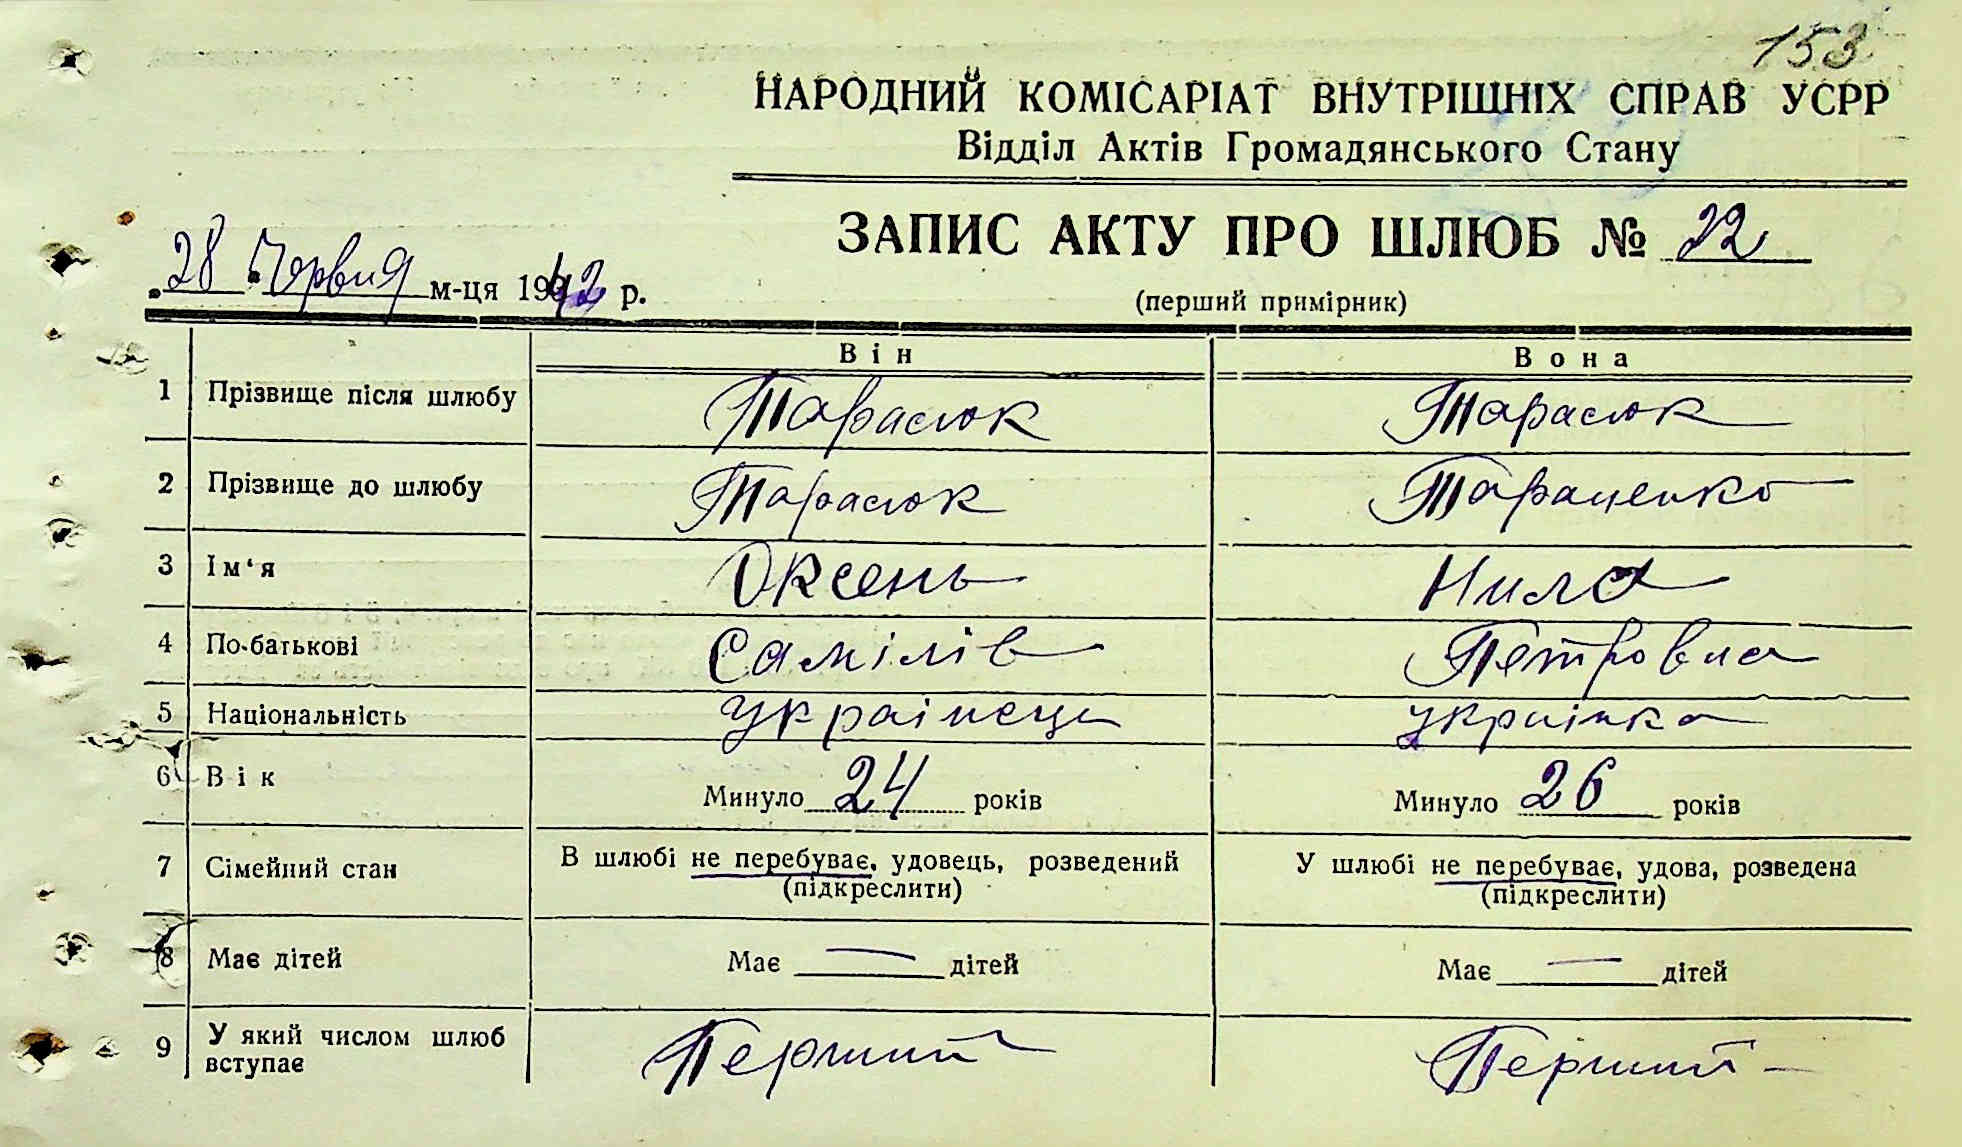 153
НАРОДНИЙ КОМІСАРІАТ ВНУТРІШНІХ СПРАВ УСРР
Відділ Актів Громадянського Стану
ЗАПИС АКТУ ПРО ШЛЮБ № 22
„28 Червня м-ця 1942 р.
(перший примірник)
Він Вона
1 Прізвище після шлюбу Тарасюк Тарасюк
2 Прізвище до шлюбу Тарасюк Тараценко
3 Ім‘я Оксень Нила
4 По-батькові Самілів Петровна
5 Національність українець українка
6 Вік Минуло 24 років Минуло 26 років
7 Сімейний стан В шлюбі не перебуває, удовець, розведений У шлюбі не перебуває, удова, розведена
(підкреслити) (підкреслити)
8 Має дітей Має — дітей Має — дітей
9 У який числом шлюб вступає Перший Перший